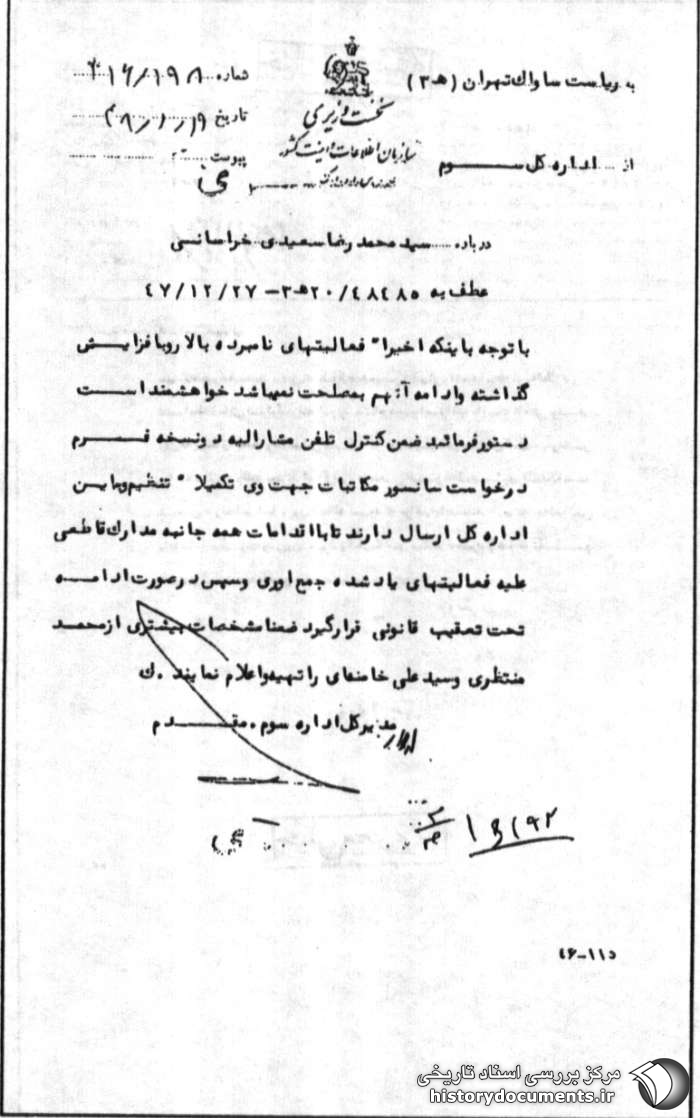 به ریاست ساواك تهران (هـ ۳)
از ... اداره کل ســـوم
نخست وزیری
سازمان اطلاعات و امنیت کشور
شماره ۳۱۶/۱۹۸
تاریخ ۴۸/۱/۱۹
پیوست
درباره ..... سید محمد رضا سعیدی خراسانـی
عطف به ۲۰/۴۸۴۸۵هـ۳ - ۴۷/۱۲/۲۷
با توجه باینکه اخیرا" فعالیتهای نامبرده بالا رو بافزایـش
گذاشته وادامه آنهم بمصلحت نمیباشد خواهشمند اســت
دستور فرمائید ضمن کنترل تلفن مشارالیه دو نسخه فــرم
درخواست سانسور مکاتبات جهت وی تکمیلا" تنظیم وباین
اداره کل ارسال دارند تا بااقدامات همه جانبه مدارك قاطعی
علیه فعالیتهای یاد شده جمع اوری وسپس در صورت ادامــه
تحت تعقیب قانونی قرار گیرد ضمنا مشخصات بیشتری از محمد
منتظری وسید علی خامنه‌ای را تهیه واعلام نمایند .ك
مدیر کل اداره سوم . مقـــدم
۴۶-۱۱۵
مرکز بررسی اسناد تاریخی
historydocuments.ir